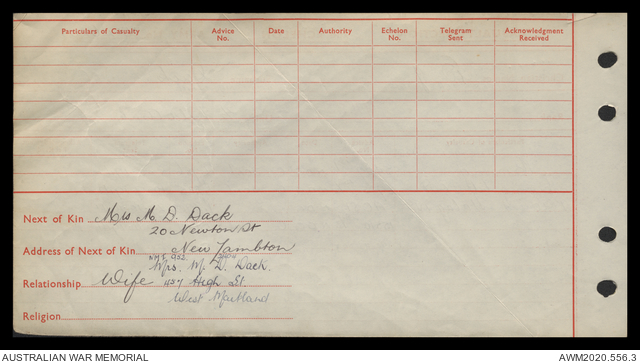 Particulars of Casualty Advice No. Date Authority Echelon No. Telegram Sent Acknowledgment Received
Next of Kin Mrs M. D. Dack
20 Newton St
Address of Next of Kin New Lambton
Mrs. M. D. Dack.
Relationship Wife 457 High St.
West Maitland
Religion
AUSTRALIAN WAR MEMORIAL AWM2020.556.3